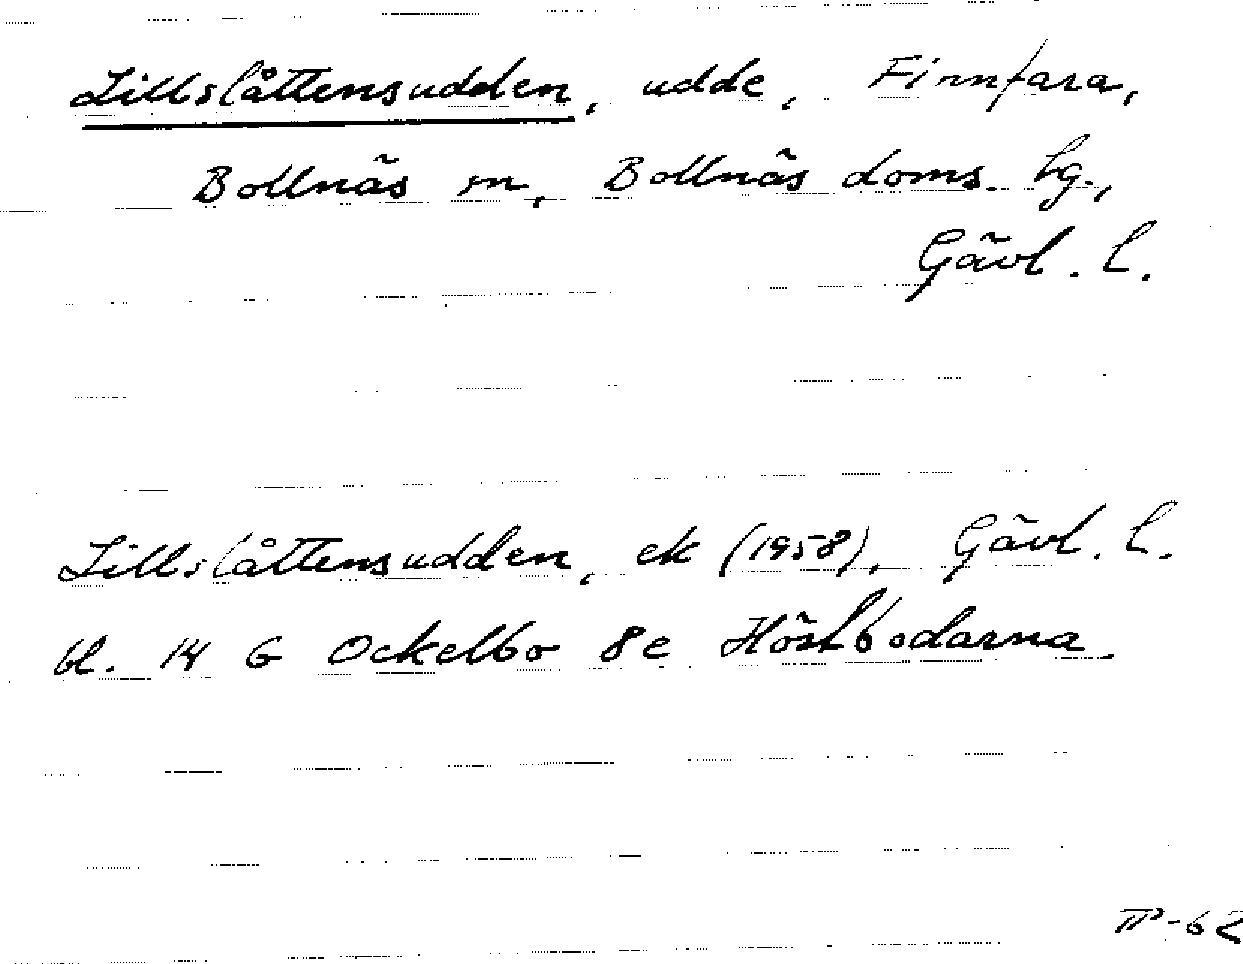 Lillslåttensudden, udde, Finnfara,
Bollnäs sn, Bollnäs doms. hg.,
Gävl. l.
Lillslåttensudden, ek (1958), Gävl. l.
bl. 14 G Ockelbo 8e Höstbodarna
TP-62